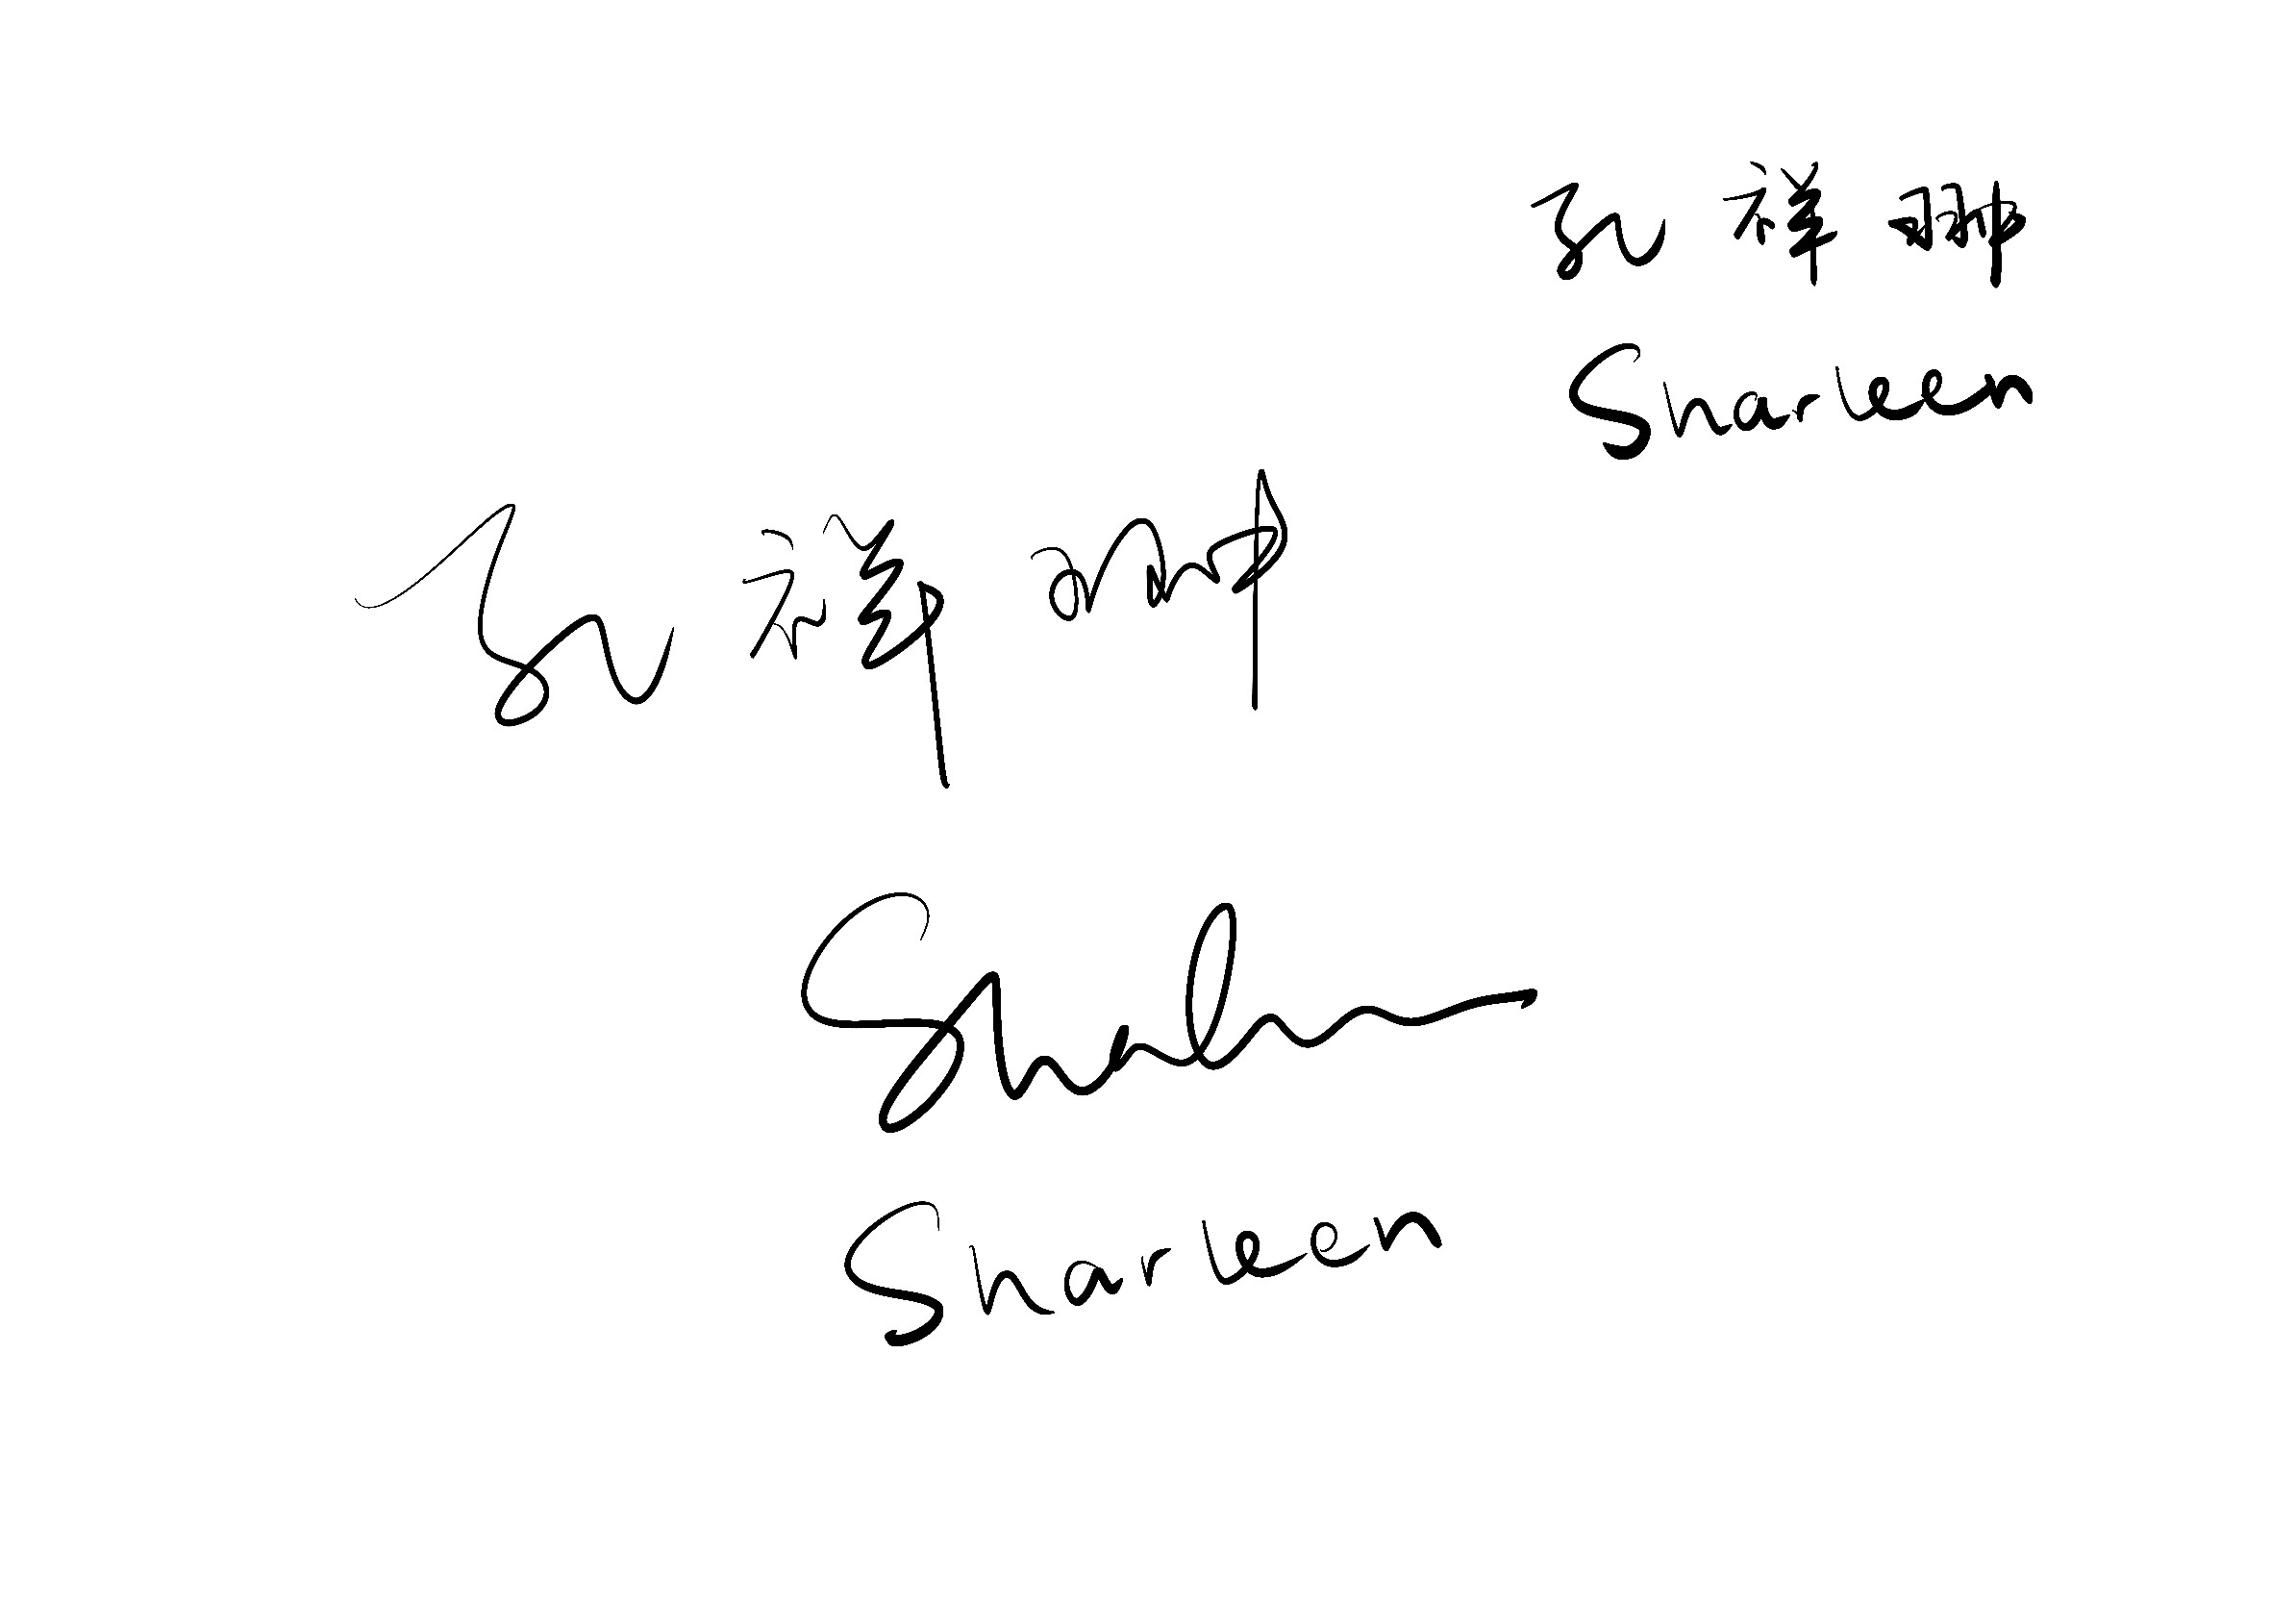 孔祥翀
Sharleen
孔祥翀
Sharleen
Sharleen